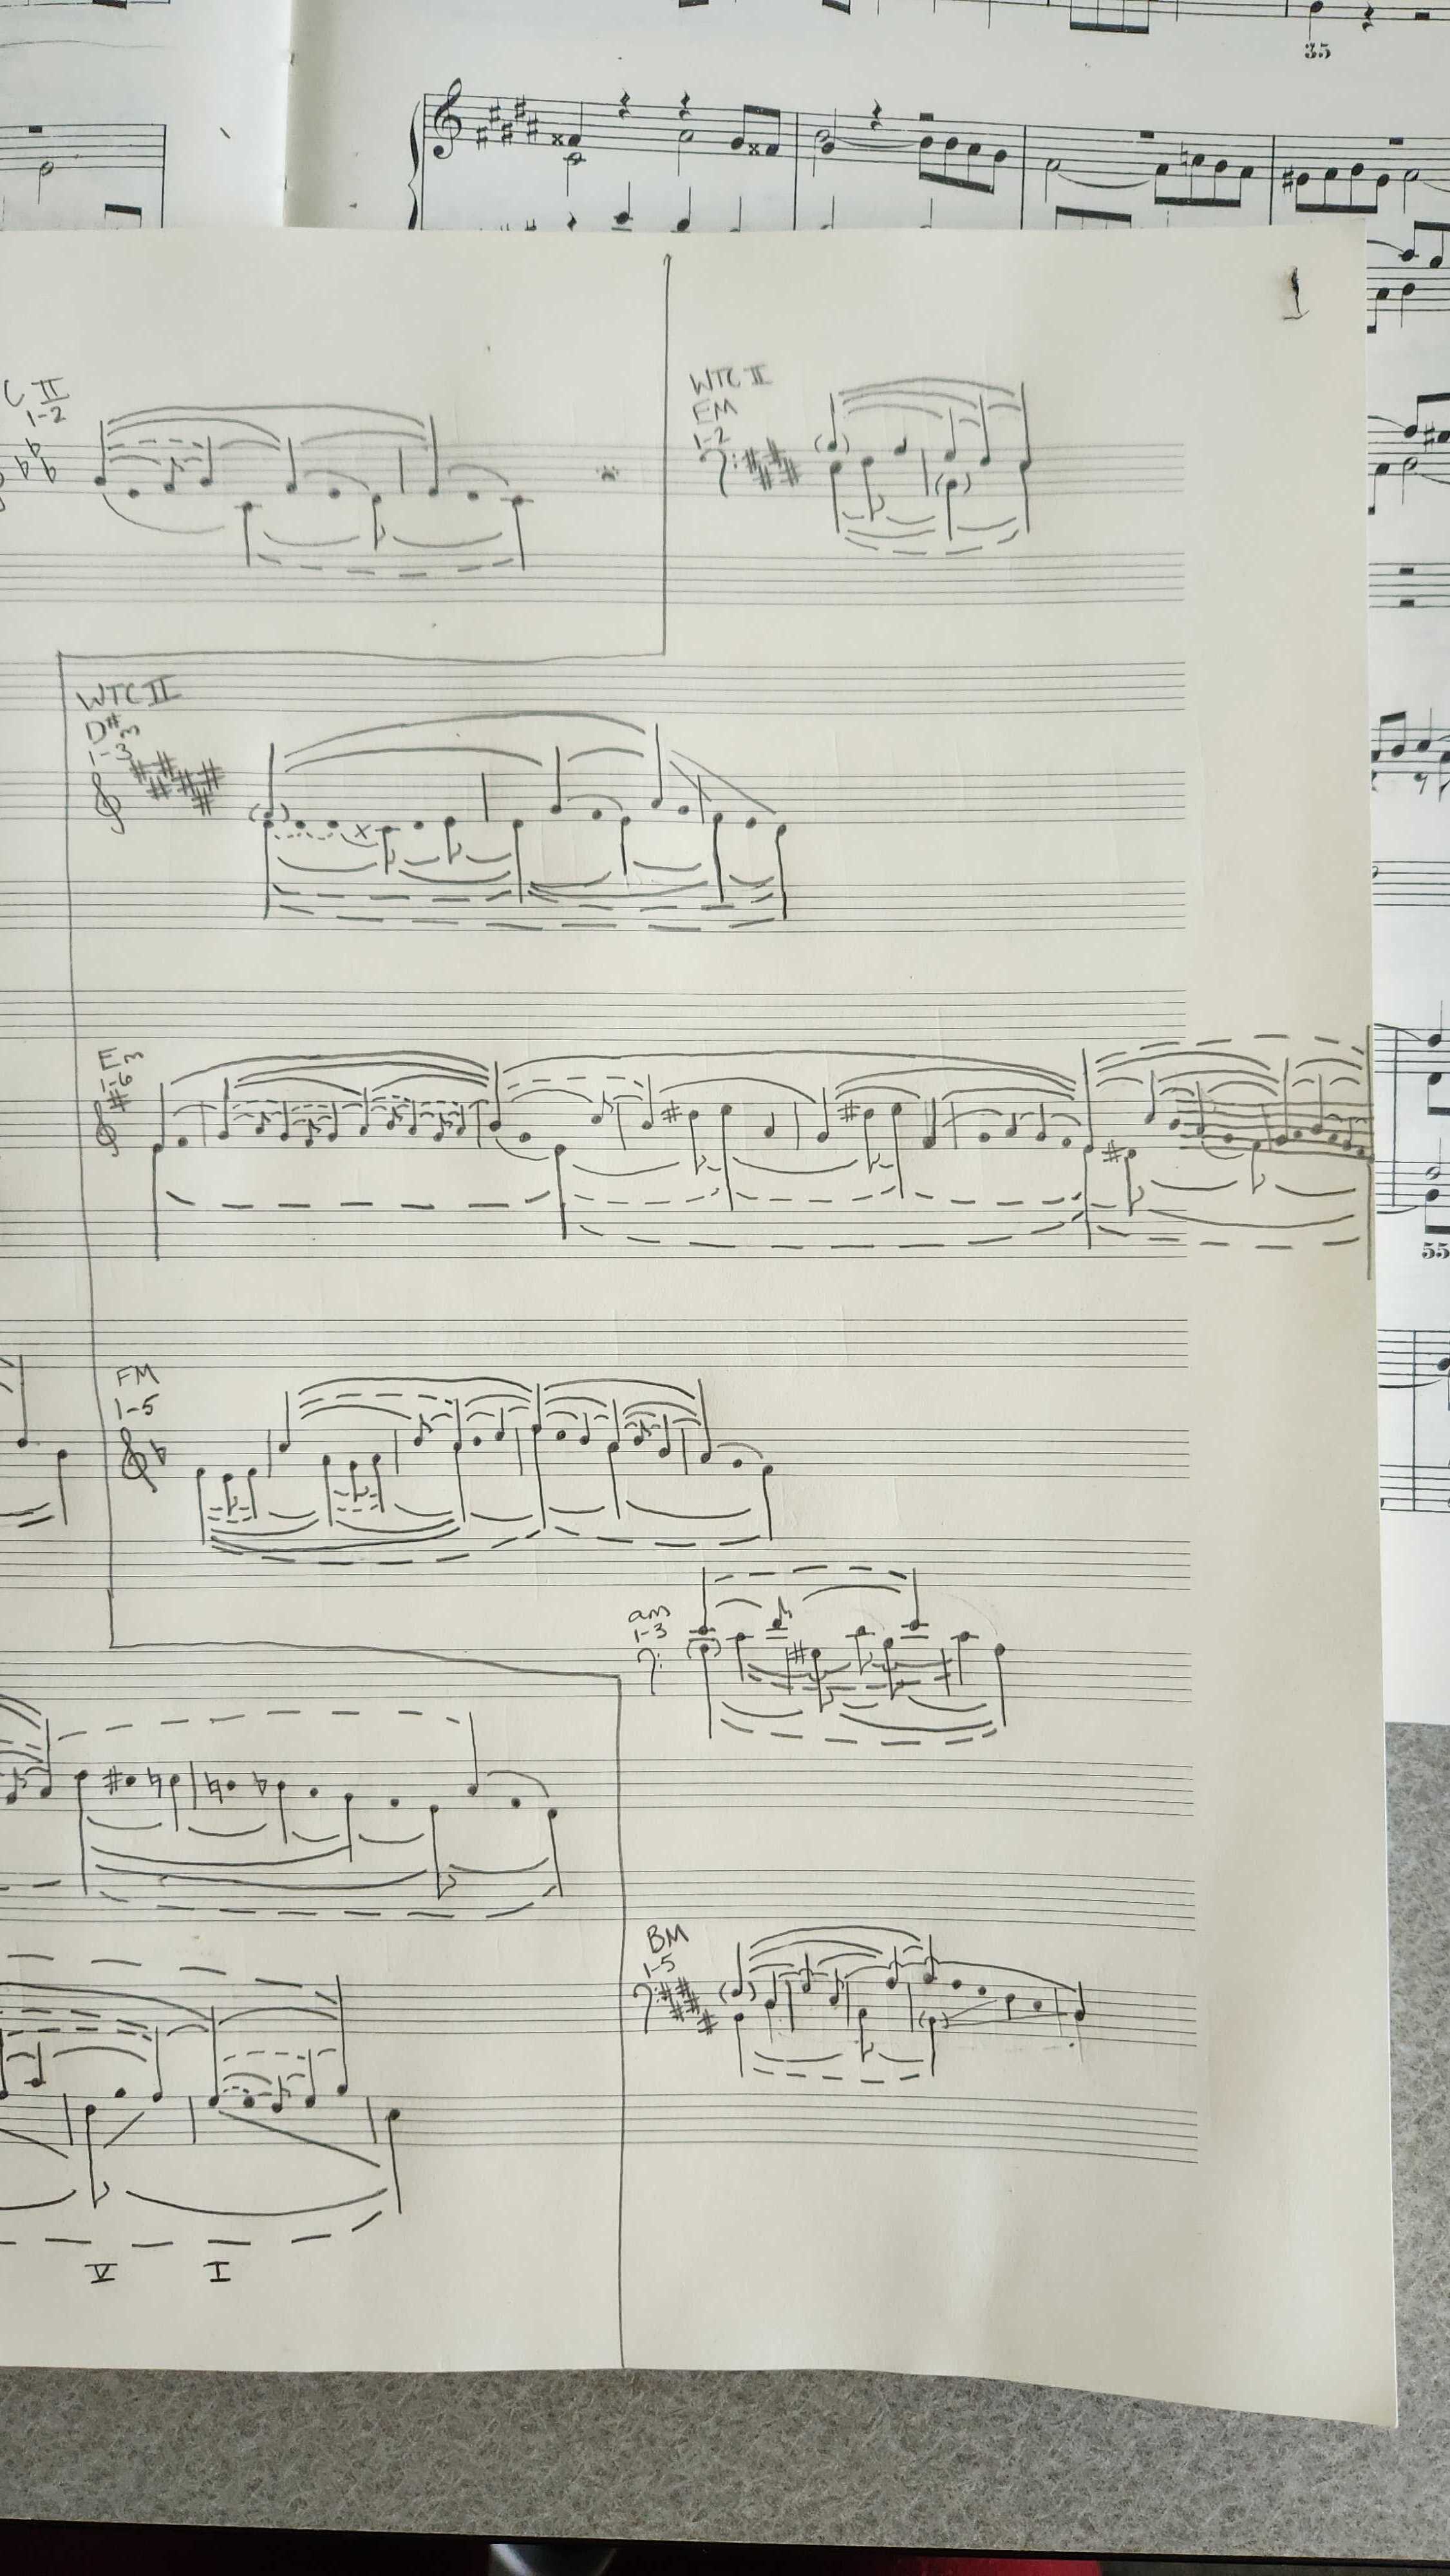 35
1
C II
1-2
WTC II
EM
1-2
WTC II
D#m
1-3
Em
1-6
55
FM
1-5
am
1-3
BM
1-5
V I